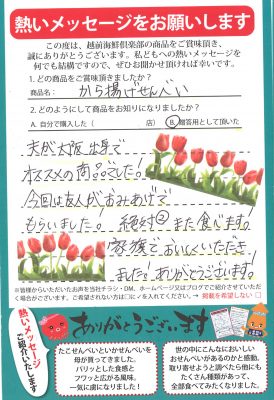 熱いメッセージをお願いします
この度は、越前海鮮倶楽部の商品をご賞味頂き、
誠にありがとうございます。私どもへの熱いメッセージを
何でも結構ですので、ぜひお聞かせ頂ければ幸いです。
1.どの商品をご賞味頂きましたか?
商品名: から揚げせんべい
2.どのようにして商品をお知りになりましたか?
A.自分で購入した( 店) B.贈答用として頂いた
夫が大阪出身で
オススメの商品でした!
今回は友人がおみあげで
もらいました! 絶対また食べます。
家族でおいしくいただき
ました。ありがとうございます!
*皆様からいただいたお声を当社チラシ・DM、ホームページ又はブログでご紹介させていただ
く場合がございます。ご希望されない方は□に✓を入れてください。→ 掲載を希望しない □
熱いメッセージ
ご紹介いたします
ありがとうございます
たこせんべいといかせんべいを
母が買ってきました。
パリッとした食感と
フワッと広がる風味。
一気に虜になりました!
世の中にこんなにおいしい
おせんべいがあるのかと感動。
取り寄せようと調べたら他にも
たくさん種類があって、
全部食べてみたくなりました。